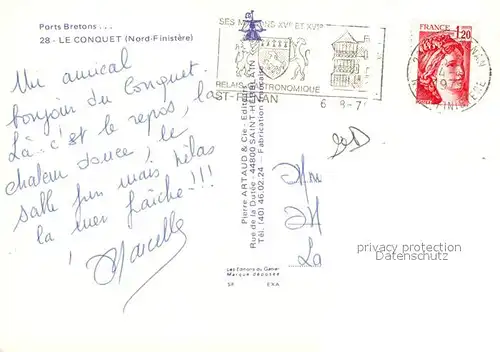 Ports Bretons ...
28 - LE CONQUET (Nord-Finistère)
Un amical
bonjour du Conquet.
Là c'est le repos, la
chaleur douce, le
sable fin mais hélas
la mer fraîche!!!
Marcelle
SES MAISONS XVIe ET XVIIe
RELAIS GASTRONOMIQUE
ST-RENAN
6 8-7
FRANCE
1,20
RENAN
FINISTERE
Pierre ARTAUD & Cie - Editeurs
Rue de la Dutée - 44800 SAINT-HERBLAIN
Tél. (40) 46.02.24 Fabrication française
Les Editions du Gabier
Marque déposée
SP EXA
La
privacy protection
Datenschutz